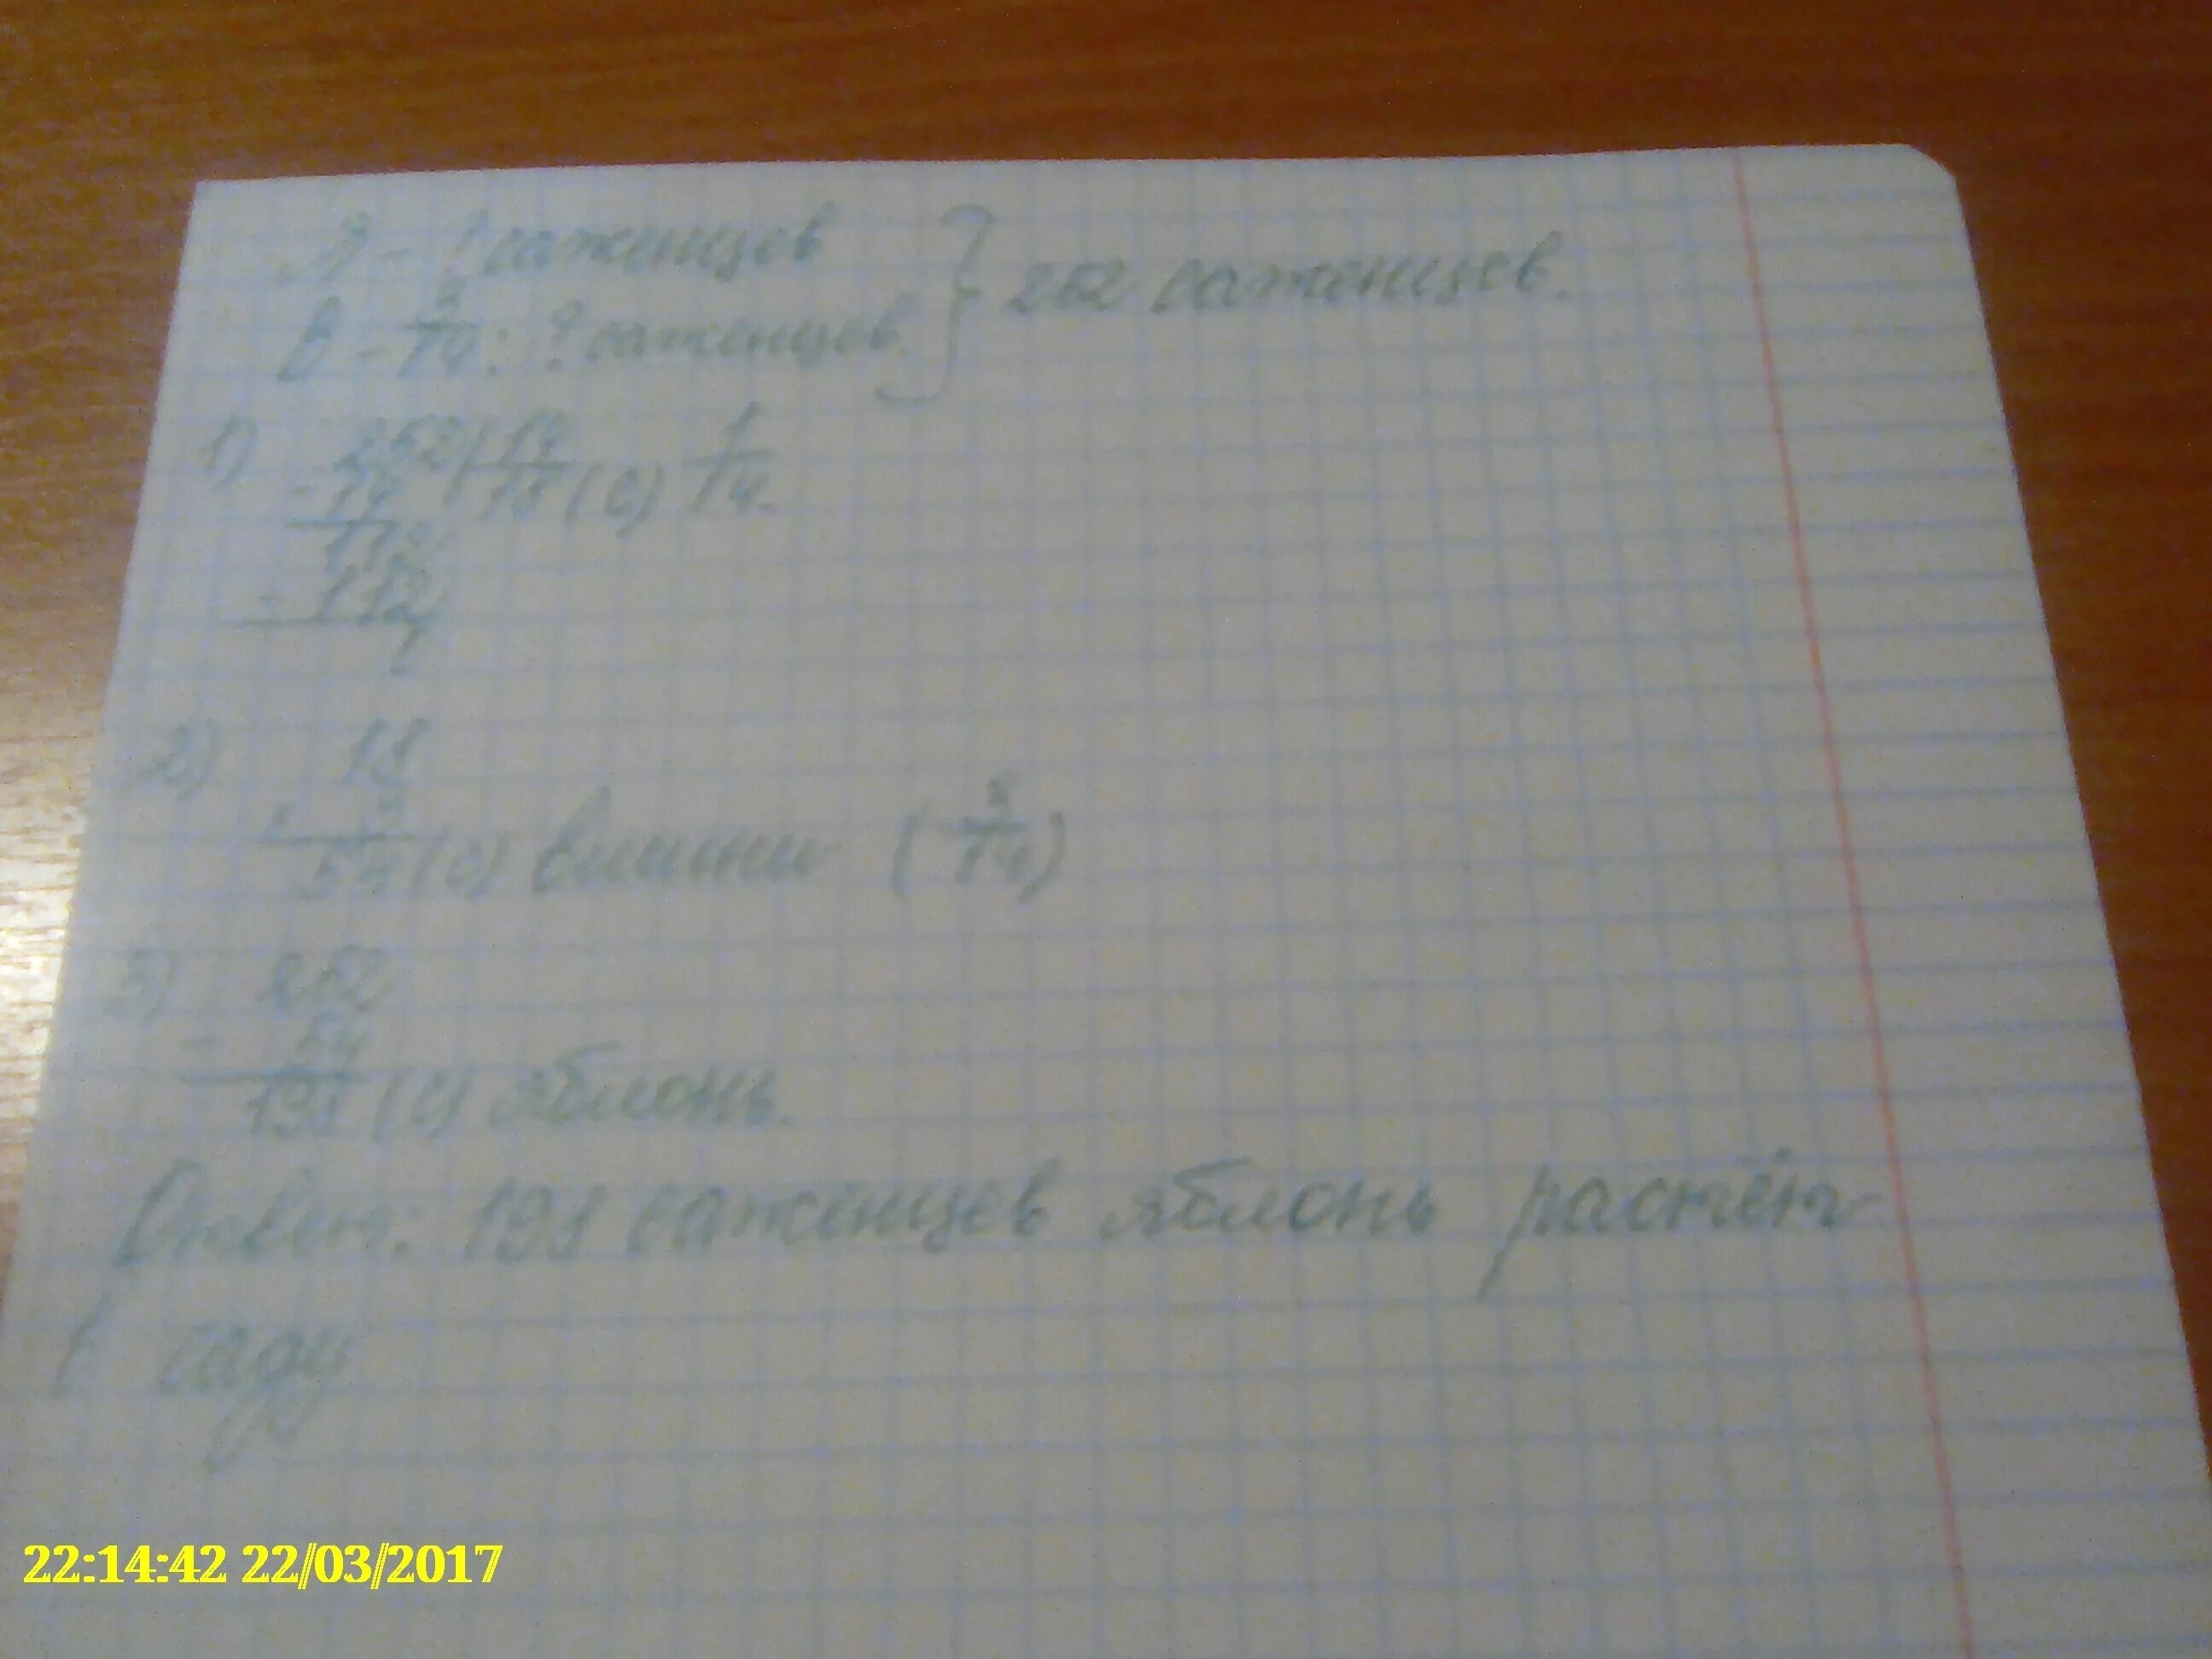 Я - ? саженцев } 252 саженцев.
В - 3/14: ? саженцев.
1) 252 | 14
- 14 18 (с) 1/14.
112
- 112
2) 18
· 3
54 (с) вишни (3/14)
3) 252
- 54
198 (с) яблонь.
Ответ: 198 саженцев яблонь растёт
в саду
22:14:42 22/03/2017